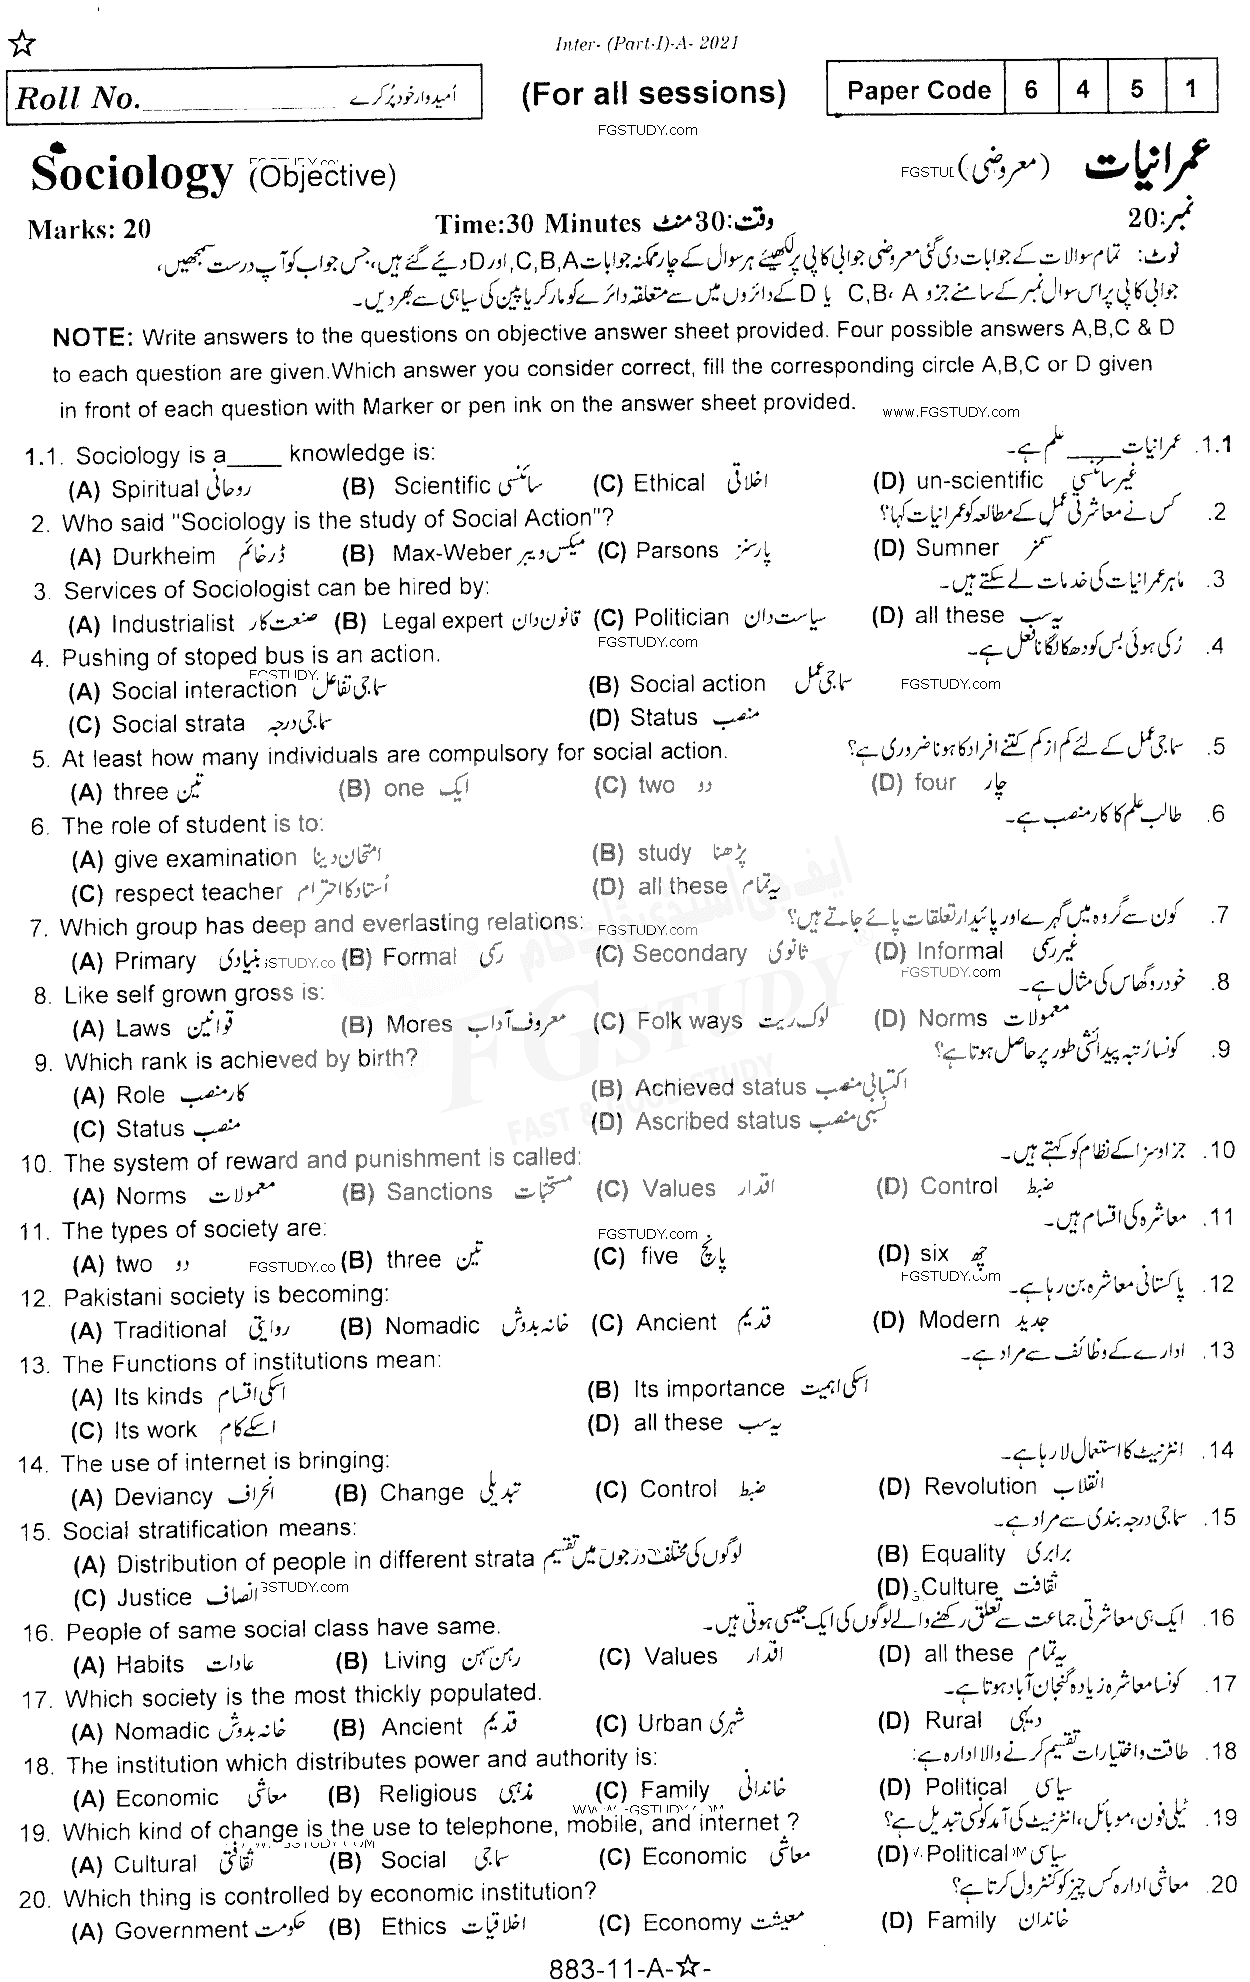 Inter- (Part-I)-A- 2021
Roll No. امیدوار خود پُر کرے (For all sessions) Paper Code 6 4 5 1
FGSTUDY.com
Sociology (Objective) عمرانیات (معروضی)
Marks: 20 Time:30 Minutes وقت:30 منٹ نمبر:20
نوٹ: تمام سوالات کے جوابات دی گئی معروضی جوابی کاپی پر لکھیئے ہر سوال کے چار ممکنہ جوابات C,B,A, اور D دیئے گئے ہیں، جس جواب کو آپ درست سمجھیں،
جوابی کاپی پر اس سوال نمبر کے سامنے جزو C,B، A یا D کے دائروں میں سے متعلقہ دائرے کو مارکر یا پین کی سیاہی سے بھر دیں۔
NOTE: Write answers to the questions on objective answer sheet provided. Four possible answers A,B,C & D
to each question are given.Which answer you consider correct, fill the corresponding circle A,B,C or D given
in front of each question with Marker or pen ink on the answer sheet provided. www.FGSTUDY.com
1.1. Sociology is a____ knowledge is: 1.1. عمرانیات ____ علم ہے۔
(A) Spiritual روحانی (B) Scientific سائنسی (C) Ethical اخلاقی (D) un-scientific غیر سائنسی
2. Who said "Sociology is the study of Social Action"? 2. کس نے معاشرتی عمل کے مطالعہ کو عمرانیات کہا؟
(A) Durkheim ڈرخائم (B) Max-Weber میکس ویبر (C) Parsons پارسنز (D) Sumner سمنر
3. Services of Sociologist can be hired by: 3. ماہر عمرانیات کی خدمات لے سکتے ہیں۔
(A) Industrialist صنعت کار (B) Legal expert قانون دان (C) Politician سیاست دان (D) all these یہ سب
FGSTUDY.com
4. Pushing of stoped bus is an action. 4. رُکی ہوئی بس کو دھکا لگانا فعل ہے۔
(A) Social interaction سماجی تفاعل (B) Social action سماجی عمل FGSTUDY.com
(C) Social strata سماجی درجہ (D) Status منصب
5. At least how many individuals are compulsory for social action. 5. سماجی عمل کے لئے کم از کم کتنے افراد کا ہونا ضروری ہے؟
(A) three تین (B) one ایک (C) two دو (D) four چار
6. The role of student is to: 6. طالب علم کا کار منصب ہے۔
(A) give examination امتحان دینا (B) study پڑھنا
(C) respect teacher اُستاد کا احترام (D) all these یہ تمام
7. Which group has deep and everlasting relations: FGSTUDY.com 7. کون سے گروہ میں گہرے اور پائیدار تعلقات پائے جاتے ہیں؟
(A) Primary بنیادی (B) Formal رسمی (C) Secondary ثانوی (D) Informal غیر رسمی
FGSTUDY.com
8. Like self grown gross is: 8. خودرو گھاس کی مثال ہے۔
(A) Laws قوانین (B) Mores معروف آداب (C) Folk ways لوک ریت (D) Norms معمولات
FGSTUDY
FAST & GOOD STUDY
9. Which rank is achieved by birth? 9. کونسا رُتبہ پیدائشی طور پر حاصل ہوتا ہے؟
(A) Role کار منصب (B) Achieved status اکتسابی منصب
(C) Status منصب (D) Ascribed status نسبی منصب
10. The system of reward and punishment is called: 10. جزا و سزا کے نظام کو کہتے ہیں۔
(A) Norms معمولات (B) Sanctions (C) Values اقدار (D) Control ضبط
11. The types of society are: FGSTUDY.com 11. معاشرہ کی اقسام ہیں۔
(A) two دو FGSTUDY.co (B) three تین (C) five پانچ (D) six چھ
FGSTUDY.com
12. Pakistani society is becoming: 12. پاکستانی معاشرہ بن رہا ہے۔
(A) Traditional روایتی (B) Nomadic خانہ بدوش (C) Ancient قدیم (D) Modern جدید
13. The Functions of institutions mean: 13. ادارے کے وظائف سے مراد ہے۔
(A) Its kinds اسکی اقسام (B) Its importance اسکی اہمیت
(C) Its work اسکے کام (D) all these یہ سب
14. The use of internet is bringing: 14. انٹرنیٹ کا استعمال لا رہا ہے۔
(A) Deviancy انحراف (B) Change تبدیلی (C) Control ضبط (D) Revolution انقلاب
15. Social stratification means: 15. سماجی درجہ بندی سے مراد ہے۔
(A) Distribution of people in different strata لوگوں کی مختلف درجوں میں تقسیم (B) Equality برابری
(C) Justice انصاف (D) Culture ثقافت
16. People of same social class have same. 16. ایک ہی معاشرتی جماعت سے تعلق رکھنے والے لوگوں کی ایک جیسی ہوتی ہیں۔
(A) Habits عادات (B) Living رہن سہن (C) Values اقدار (D) all these یہ تمام
17. Which society is the most thickly populated. 17. کونسا معاشرہ زیادہ گنجان آباد ہوتا ہے۔
(A) Nomadic خانہ بدوش (B) Ancient قدیم (C) Urban شہری (D) Rural دیہی
18. The institution which distributes power and authority is: 18. طاقت و اختیارات تقسیم کرنے والا ادارہ ہے:
(A) Economic معاشی (B) Religious مذہبی (C) Family خاندانی (D) Political سیاسی
19. Which kind of change is the use to telephone, mobile, and internet ? 19. ٹیلی فون، موبائل، انٹرنیٹ کی آمد کونسی تبدیل ہے؟
(A) Cultural ثقافتی (B) Social سماجی (C) Economic معاشی (D) Political سیاسی
20. Which thing is controlled by economic institution? 20. معاشی ادارہ کس چیز کو کنٹرول کرتا ہے؟
(A) Government حکومت (B) Ethics اخلاقیات (C) Economy معیشت (D) Family خاندان
883-11-A-☆-